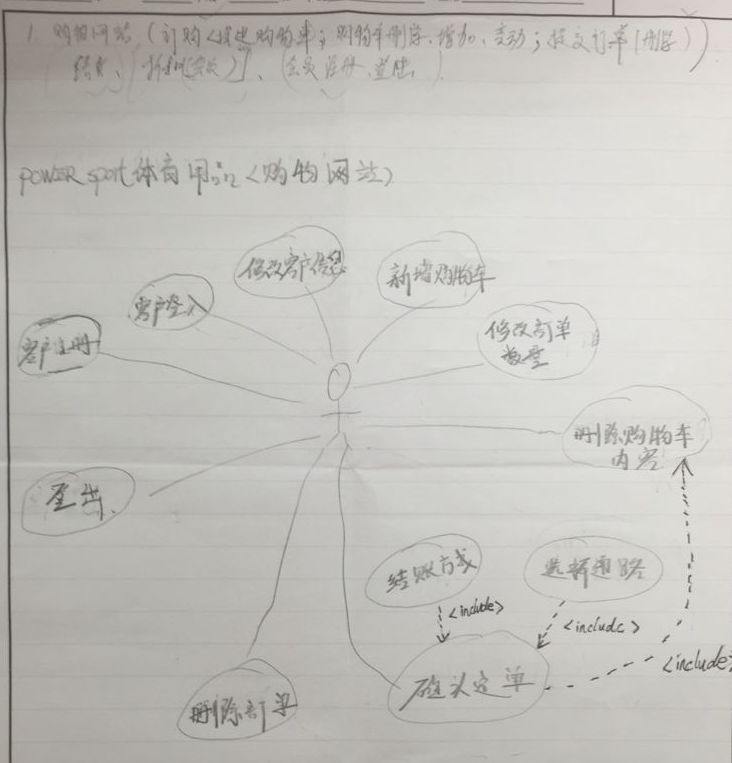 1. 购物网站（订购<建进购物车；购物车删除、增加、变动；提交订单[删除]）
结账、会员注册、登陆
POWER sport体育用品<购物网站>
修改客户信息
新增购物车
客户登入
修改订单
数量
客户注册
删除购物车
内容
登出
结账方式
选择通路
<include>
<include>
<include>
确认定单
删除订单